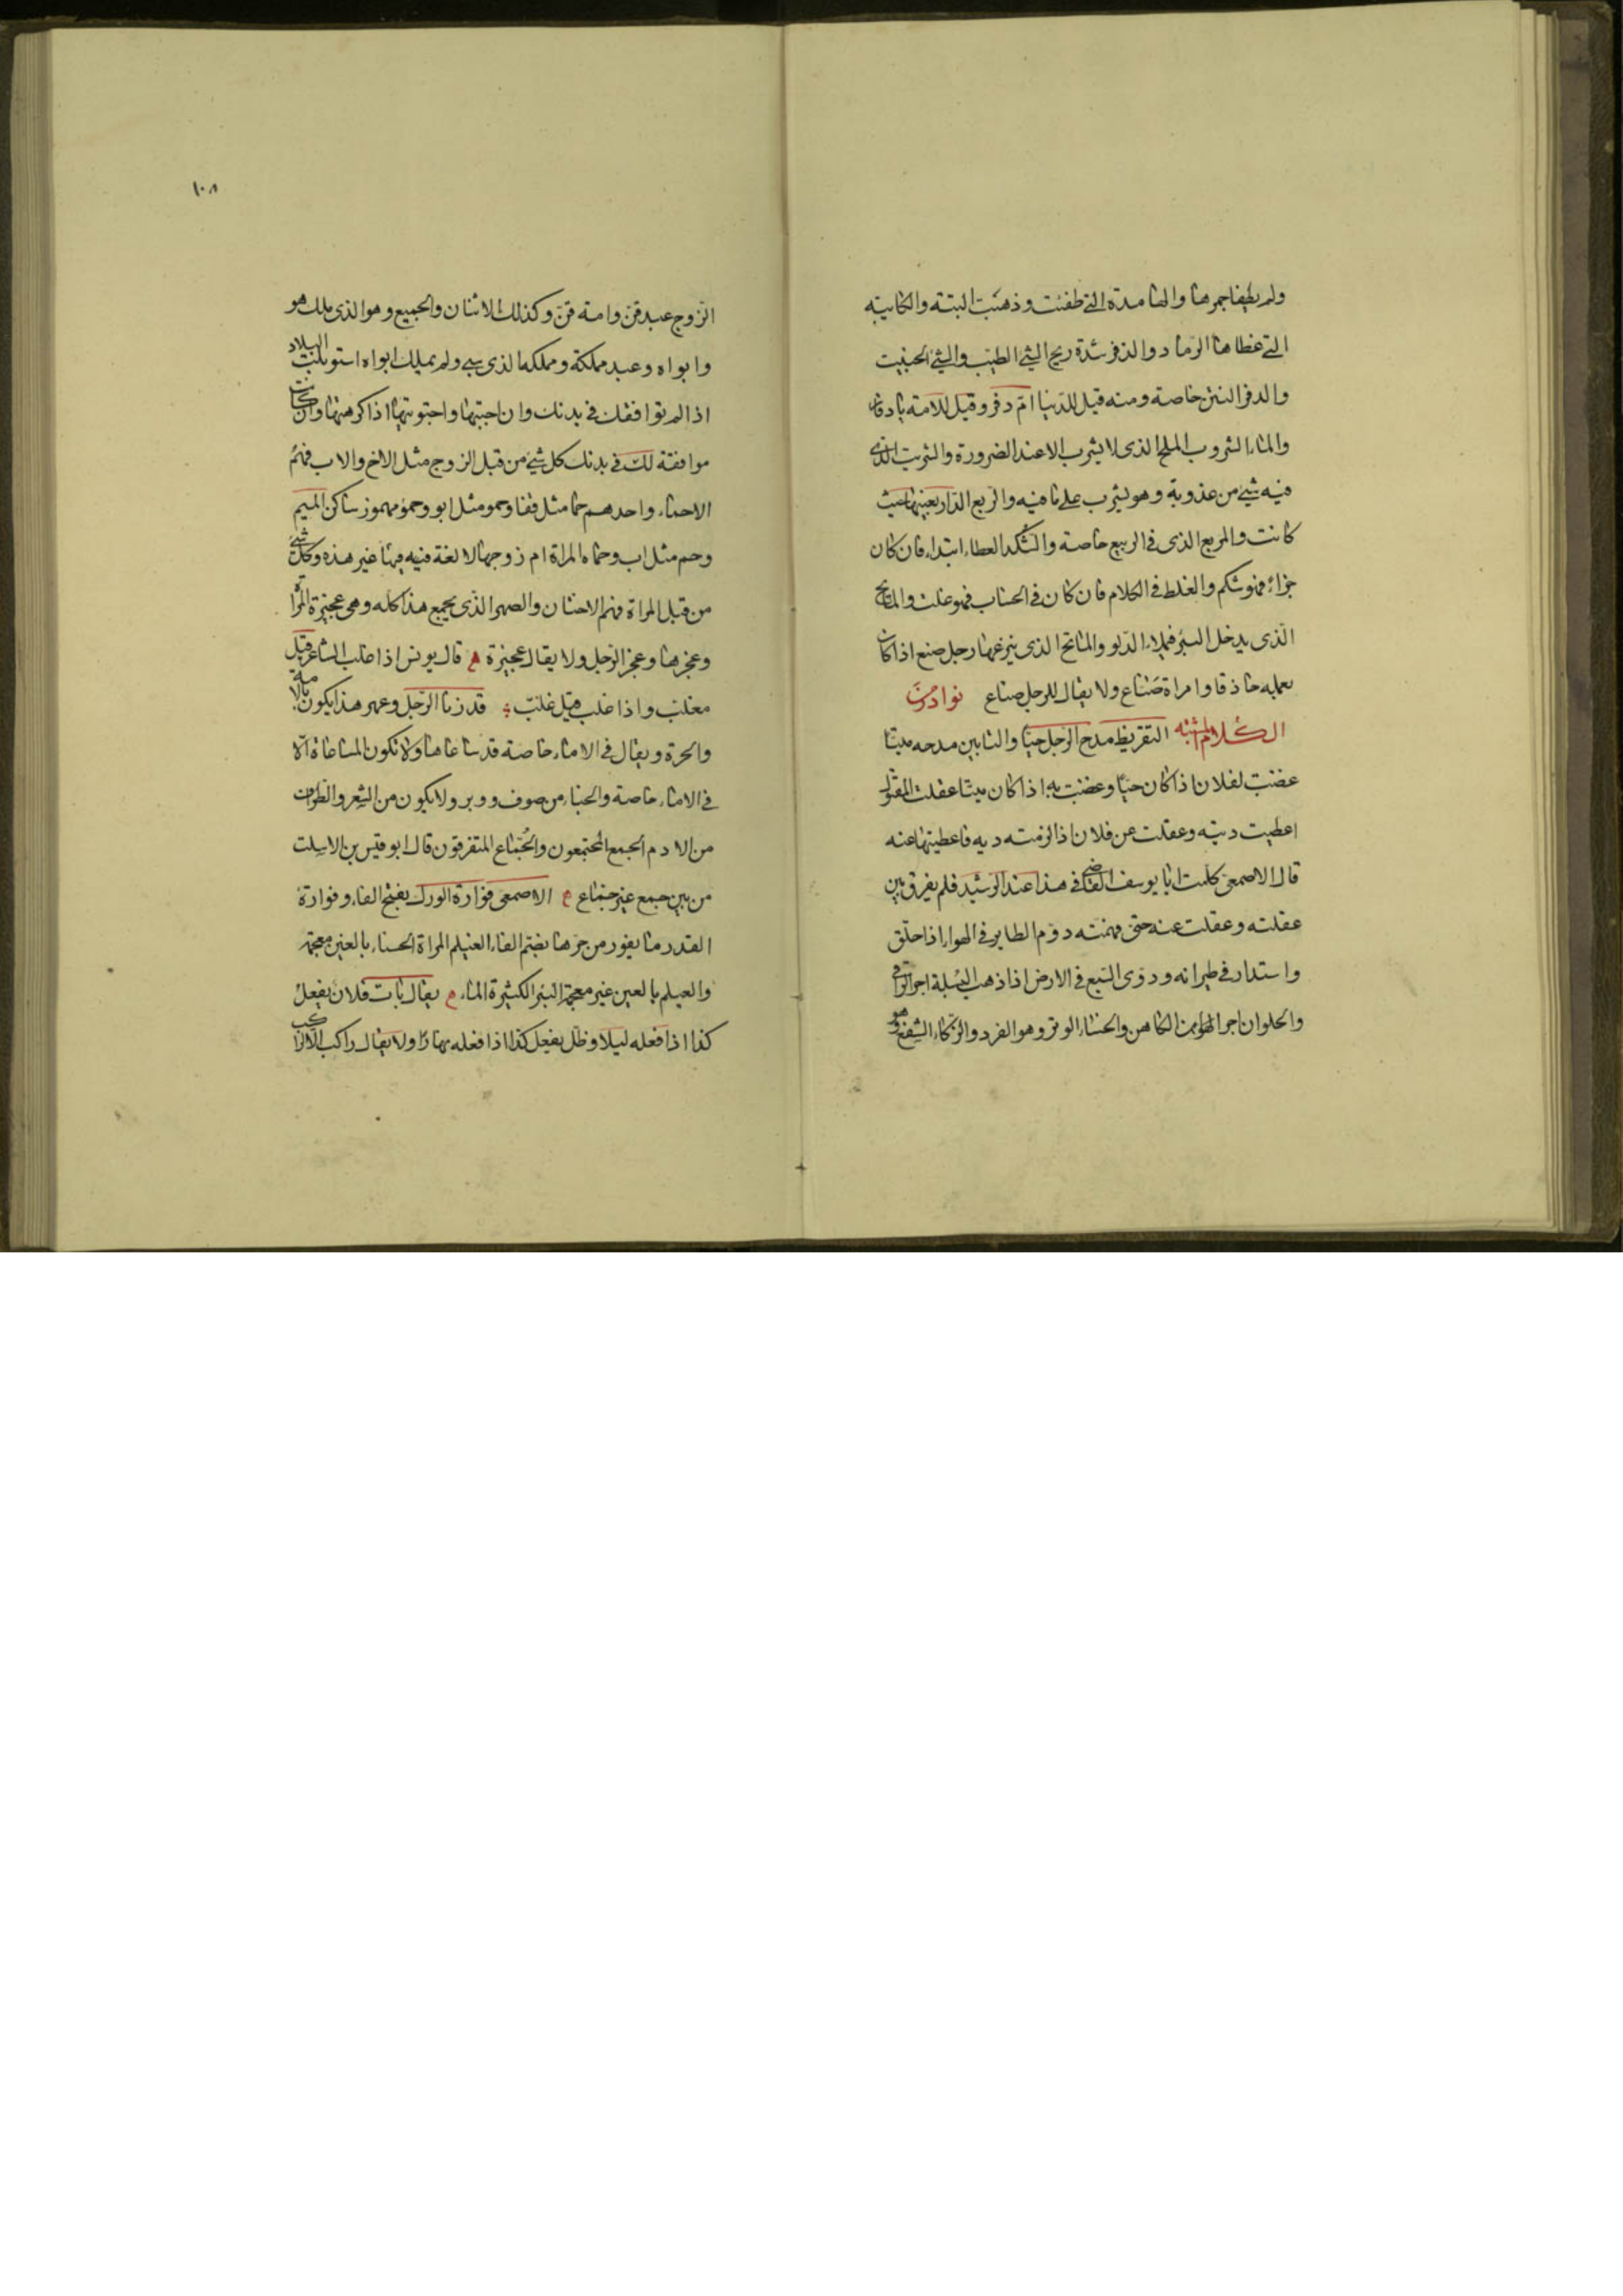 ولم يطفا جمرها والهامدة التي طفئت وذهبت البتة والكابيه
التي غطاها الرماد والذفر شدة ريح الشئ الطيب والشئ الخبيث
والدفر النتن خاصة ومنه قيل للدنيا ام دفر وقيل للامة يا دفار
والماء الشروب الملح الذى لا يشرب الا عند الضرورة والشريب الذى
فيه شئ من عذوبة وهو يشرب على ما فيه والربع الدار بعينها حيث
كانت والمربع الذى فى الربيع خاصة والشكد العطاء ابتداء فان كان
جزاء فهو شكم والغلط فى الكلام فان كان فى الحساب فهو غلت والمايح
الذى يدخل البئر فيملاء الدلو والماتح الذى ينزعها رجل صنع اذا كان
بعمله حاذقا وامراة صناع ولا يقال للرجل صناع نوادر من
الكلام المشتبه التقريظ مدح الرجل حيا والتابين مدحه ميتا
غضبت لفلان اذا كان حيا وغضبت به اذا كان ميتا عقلت المقتول
اعطيت ديته وعقلت عن فلان اذا لزمته دية فاعطيتها عنه
قال الاصمعى كلمت ابا يوسف القاضى فى هذا عند الرشيد فلم يفرق بين
عقلته وعقلت عنه حتى فهمته دوم الطاير فى الهواء اذا حلق
واستدار فى طيرانه ودوى السبع فى الارض اذا ذهب البسلة اجر الراقى
والحلوان اجر الكاهن والخسا الوتر وهو الفرد والزكاء الشفع وهو
١٠٨
الزوج عبد قن وامة قن وكذلك الاثنان والجميع وهو الذى ملك هو
وابواه وعبد مملكة ومملكة الذى سبي ولم يملك ابواه استوبلت البلاد
اذا لم توافقك فى بدنك وان احببتها واجتويتها اذا كرهتها وان كانت
موافقة لك فى بدنك كل شئ من قبل الزوج مثل الاخ والاب فهم
الاحماء واحدهم حما مثل قفا وحمو مثل ابو وحمؤ مهموز ساكن الميم
وحم مثل اب وحماه المراة ام زوجها لا لغة فيه فيها غير هذه وكل شئ
من قبل المراة فهم الاختان والصهر الذى يجمع هذا كله وهى عجيزة المراة
وعجزها وعجز الرجل ولا يقال عجيزة م قال يونس اذا غلب الشاعر قيل
مغلب واذا غلب قيل غلب قد زنا الرجل وعهر هذا يكون بالامة
والحرة ويقال فى الاماء خاصة قد ساعاها ولا تكون المساعاة الا
فى الاماء خاصة والخباء من صوف ووبر ولا يكون من الشعر والطراف
من الادم الجمع المجتمعون والجماع المتفرقون قال ابو قيس بن الاسلت
من بين جمع غير جماع م الاصمعى فوارة الورك بفتح الفاء وفوارة
القدر ما يفور من حرها بضم الفاء الغيلم المراة الحسناء بالغين معجمة
والعيلم بالعين غير معجمة البئر الكثيرة الماء م يقال بات فلان يفعل
كذا اذا فعله ليلا وظل يفعل كذا اذا فعله نهارا ولا يقال راكب الا لراكب